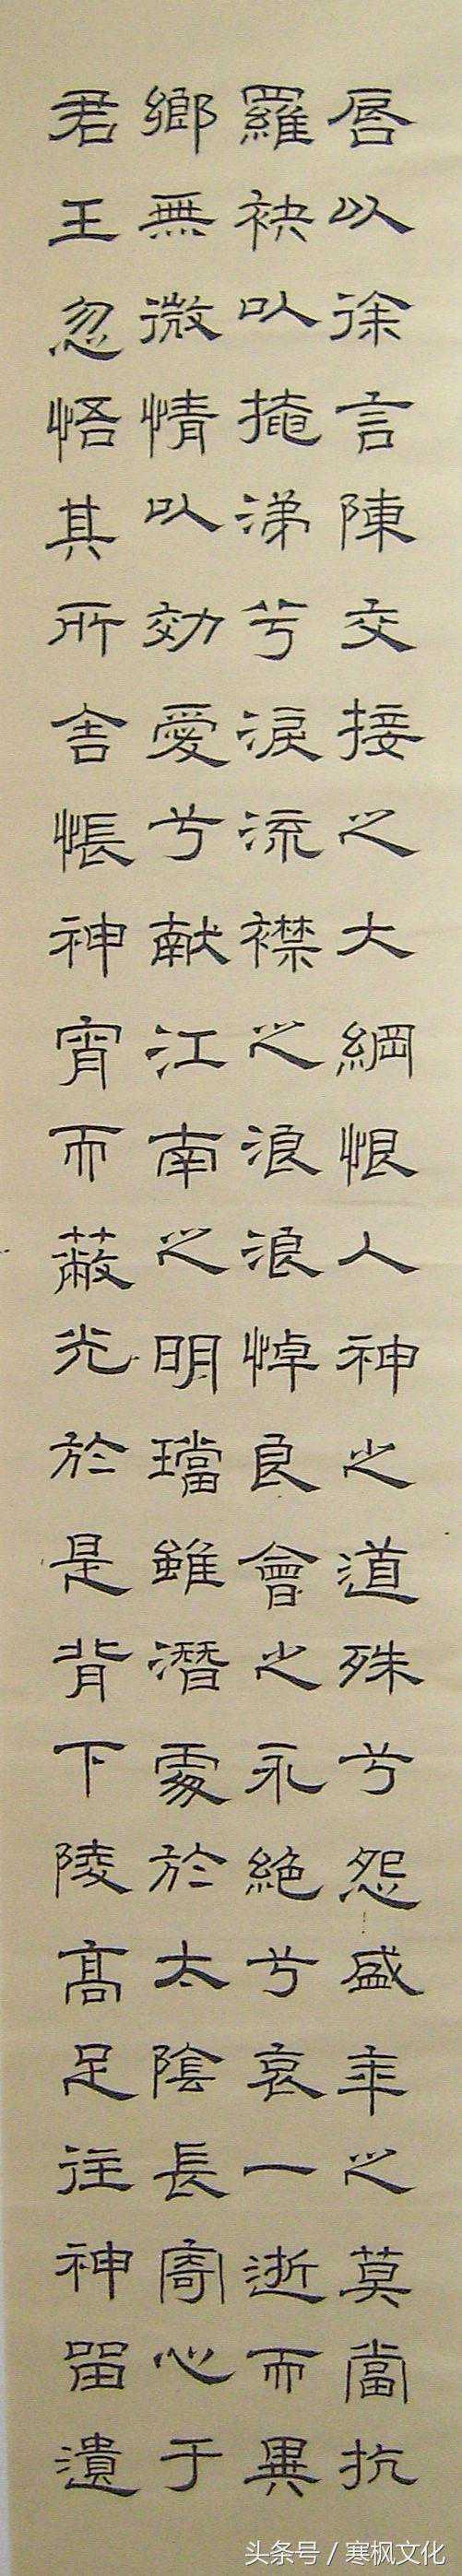 唇以徐言陳交接之大綱恨人神之道殊兮怨盛年之莫當抗
羅袂以掩涕兮淚流襟之浪浪悼良會之永絕兮哀一逝而異
鄉無微情以効愛兮献江南之明璫雖潛處於太陰長寄心于
君王忽悟其所舍悵神宵而蔽光於是背下陵高足往神留遺
头条号 / 寒枫文化